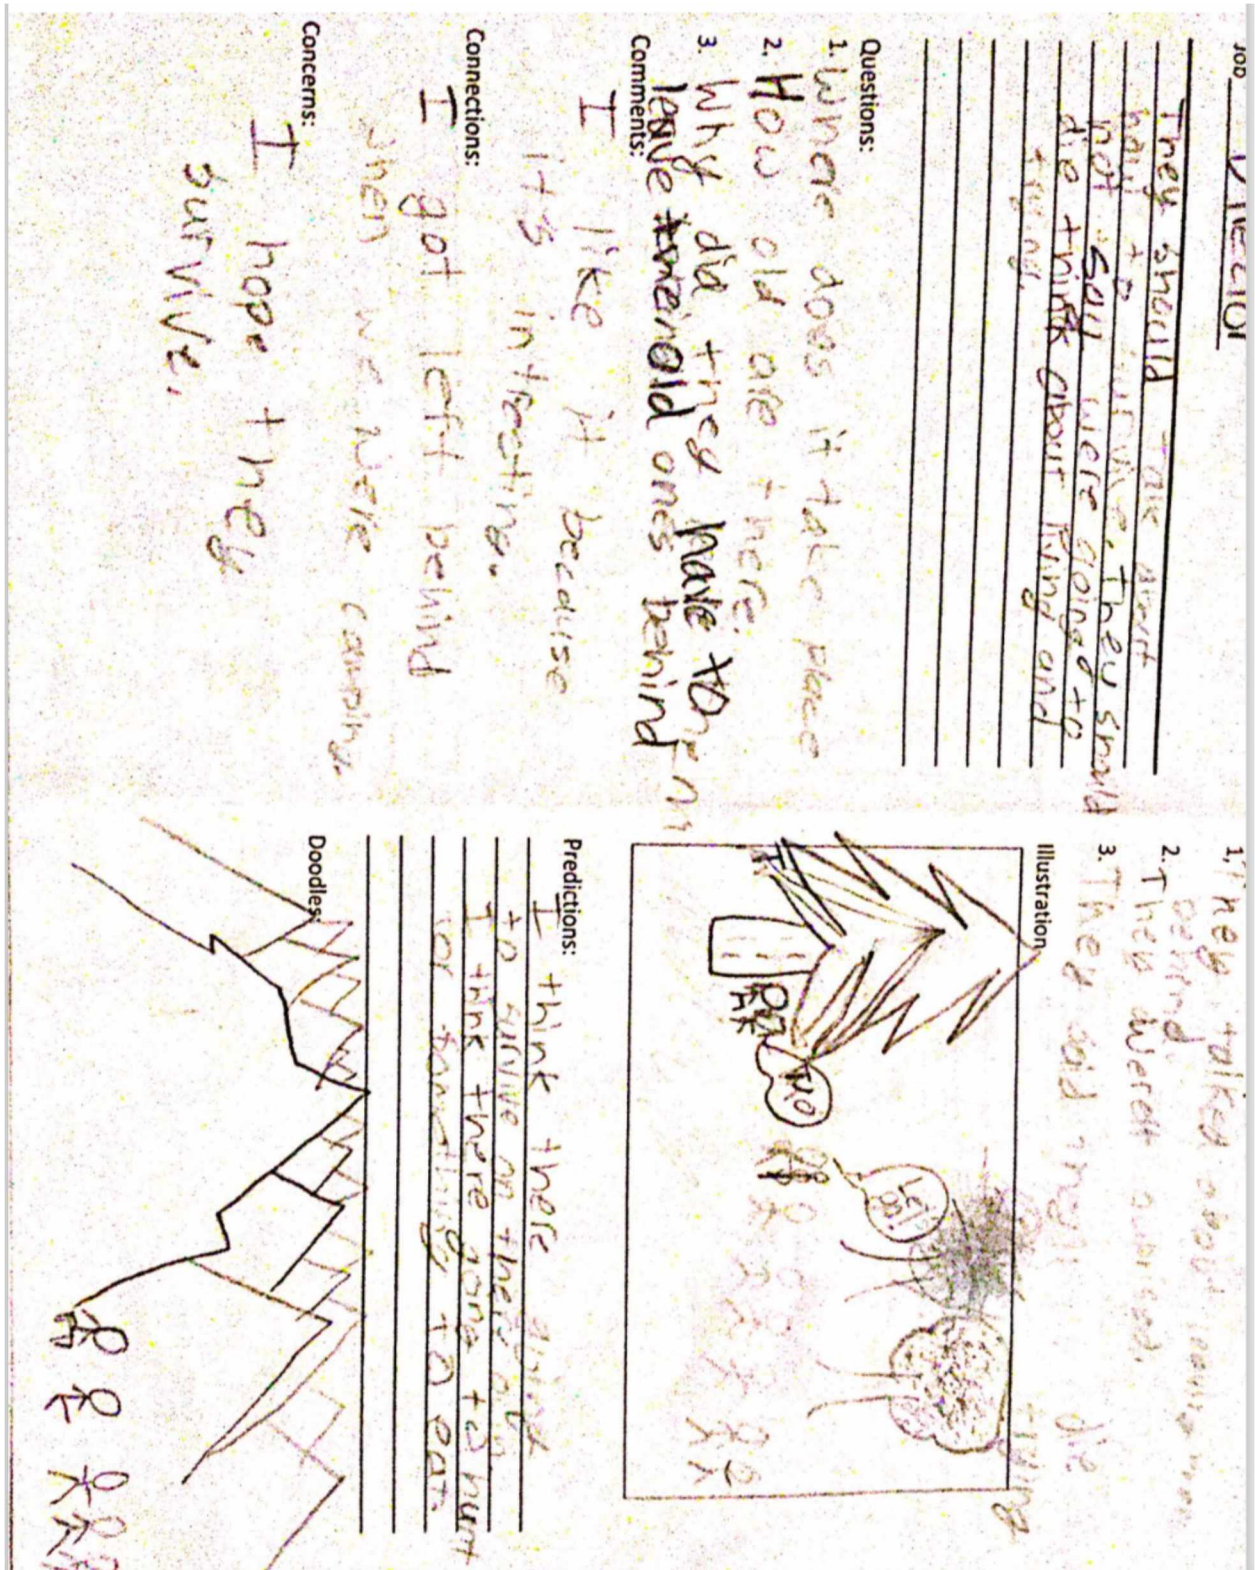 Job Director
They should talk about
how to survive. They should
not say were going to
die think about living and
trying.
Questions:
1. Where does it take place
2. How old are there.
3. Why did they have to
leave old ones behind
Comments:
I like it because
it's intrecting.
Connections:
I got left behind
when we were camping.
Concerns:
I hope they
survive.
1. They talked about
behind
2. They
3. They said they
die
trying
Illustration
TWO
Left
Predictions:
I think there
to survive on there own
I think there gona to hunt
for something to eat.
Doodles: